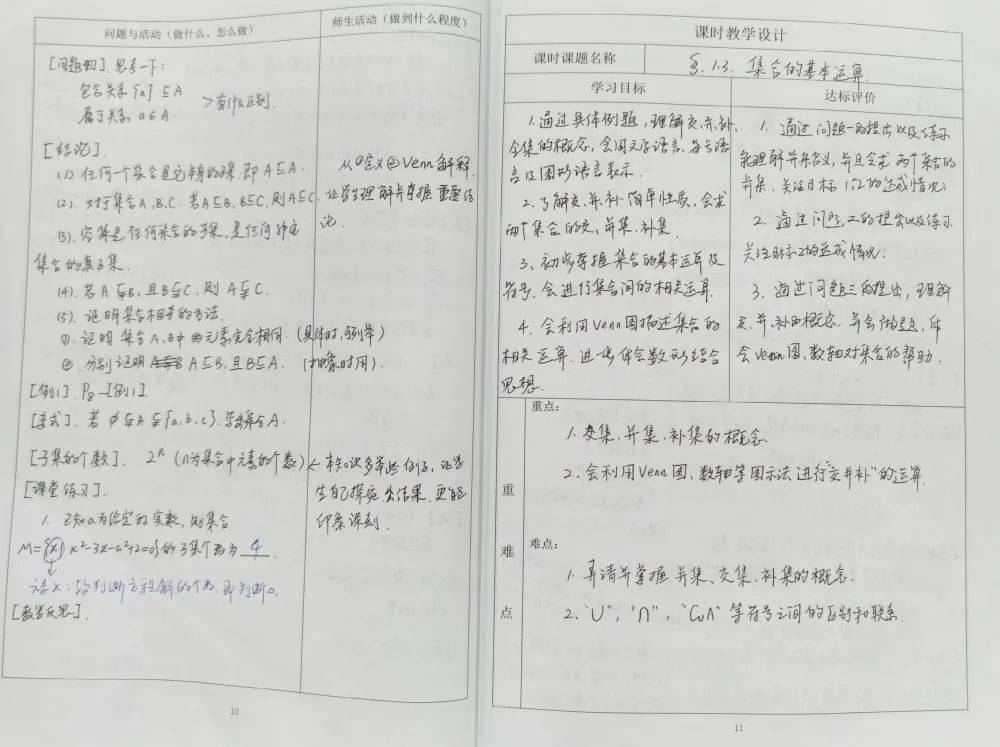 问题与活动（做什么、怎么做）
师生活动（做到什么程度）
[问题四]. 思考一下:
包含关系 {a} ⊆ A
属于关系 a∈A.
> 有什么区别.
[结论].
(1) 任何一个集合是它本身的子集. 即 A⊆A.
(2). 对于集合A,B,C. 若A⊆B, B⊆C, 则A⊆C.
(3). 空集是任何集合的子集, 是任何非空
集合的真子集.
(4). 若A⫋B, 且B⫋C, 则 A⫋C.
(5). 证明集合相等的方法.
①. 证明 集合A、B中的元素完全相同. (具体时, 列举)
②. 分别证明 A⊆B, 且B⊆A. (抽象时用).
[例1]. P8—[例1].
[变式]. 若 ∅⫋A⫋{a,b,c}. 写出集合A.
[子集的个数]. 2ⁿ (n为集合中元素的个数)
[课堂练习].
1. 已知a为给定的实数, 则集合
M={x| x²-3x-a²+2=0}的子集个数为 4
元素x: 即判断方程解的个数. 即判断△.
[教学反思].
从①定义②Venn 解释,
让学生理解并掌握 重要结
论.
← 本知识多举些例子, 让学
生自己探究出结果. 更能
印象深刻.
10
课时教学设计
课时课题名称
§. 1.3. 集合的基本运算.
学习目标
达标评价
1. 通过具体例题, 理解交、并、补、
全集的概念, 会用文字语言、符号语
言及图形语言表示.
2. 了解交、并、补 简单性质, 会求
两个集合的交、并集、补集.
3、初步掌握集合的基本运算及
符号, 会进行集合间的相关运算.
4. 会利用Venn图描述集合的
相关运算. 进一步体会数形结合
思想.
1. 通过问题一的提出以及练习
能理解并集含义, 并且会求 两个集合的
并集. 关注目标1、2的达成情况
2. 通过问题二的提出以及练习
关注目标2的达成情况.
3. 通过问题三的提出, 理解
交、并、补的概念. 体
会Venn图、数轴对集合的帮助.
重
难
点
重点:
1. 交集、并集、补集的概念
2. 会利用Venn图、数轴等图示法 进行"交并补"的运算.
难点:
1. 弄清并掌握 并集、交集、补集的概念.
2、"∪", "∩", "CᵤA" 等符号之间的区别和联系.
11